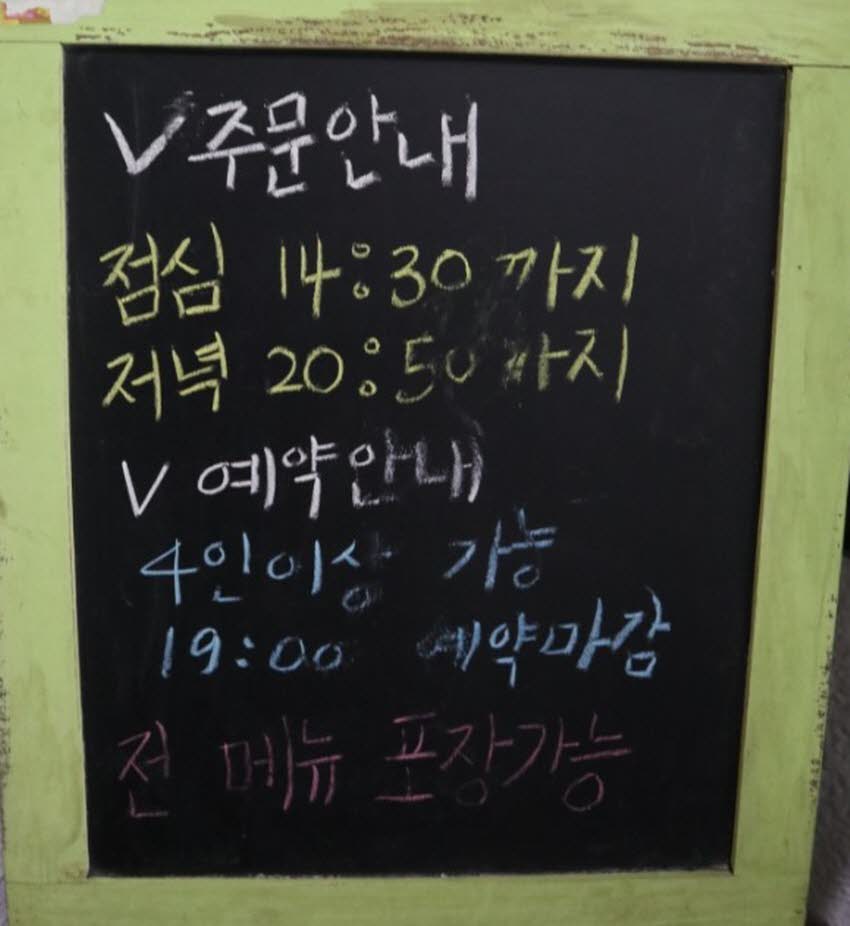 V 주문안내
점심 14:30 까지
저녁 20:50 까지
V 예약안내
4인이상 가능
19:00 예약마감
전 메뉴 포장가능